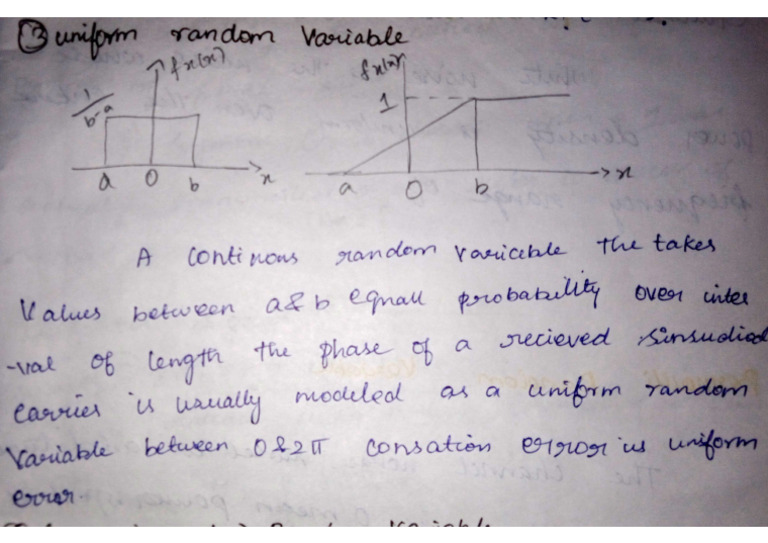 ③ uniform random Variable
fx(x)
fx(x)
1/b-a
1
a 0 b x
a 0 b x
A continous random variceble the takes
Values between a & b equall probability over inter
-val of length the phase of a recieved sinsudiod
carries is usually modeled as a uniform random
Variable between 0 & 2π consation error is uniform
error.
Variable